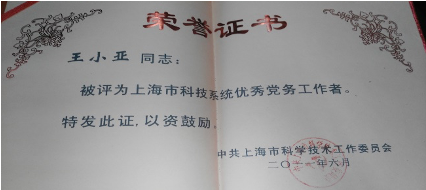 荣誉证书
王小亚 同志：
被评为上海市科技系统优秀党务工作者。
特发此证，以资鼓励。
中共上海市科学技术工作委员会
二〇一一年六月